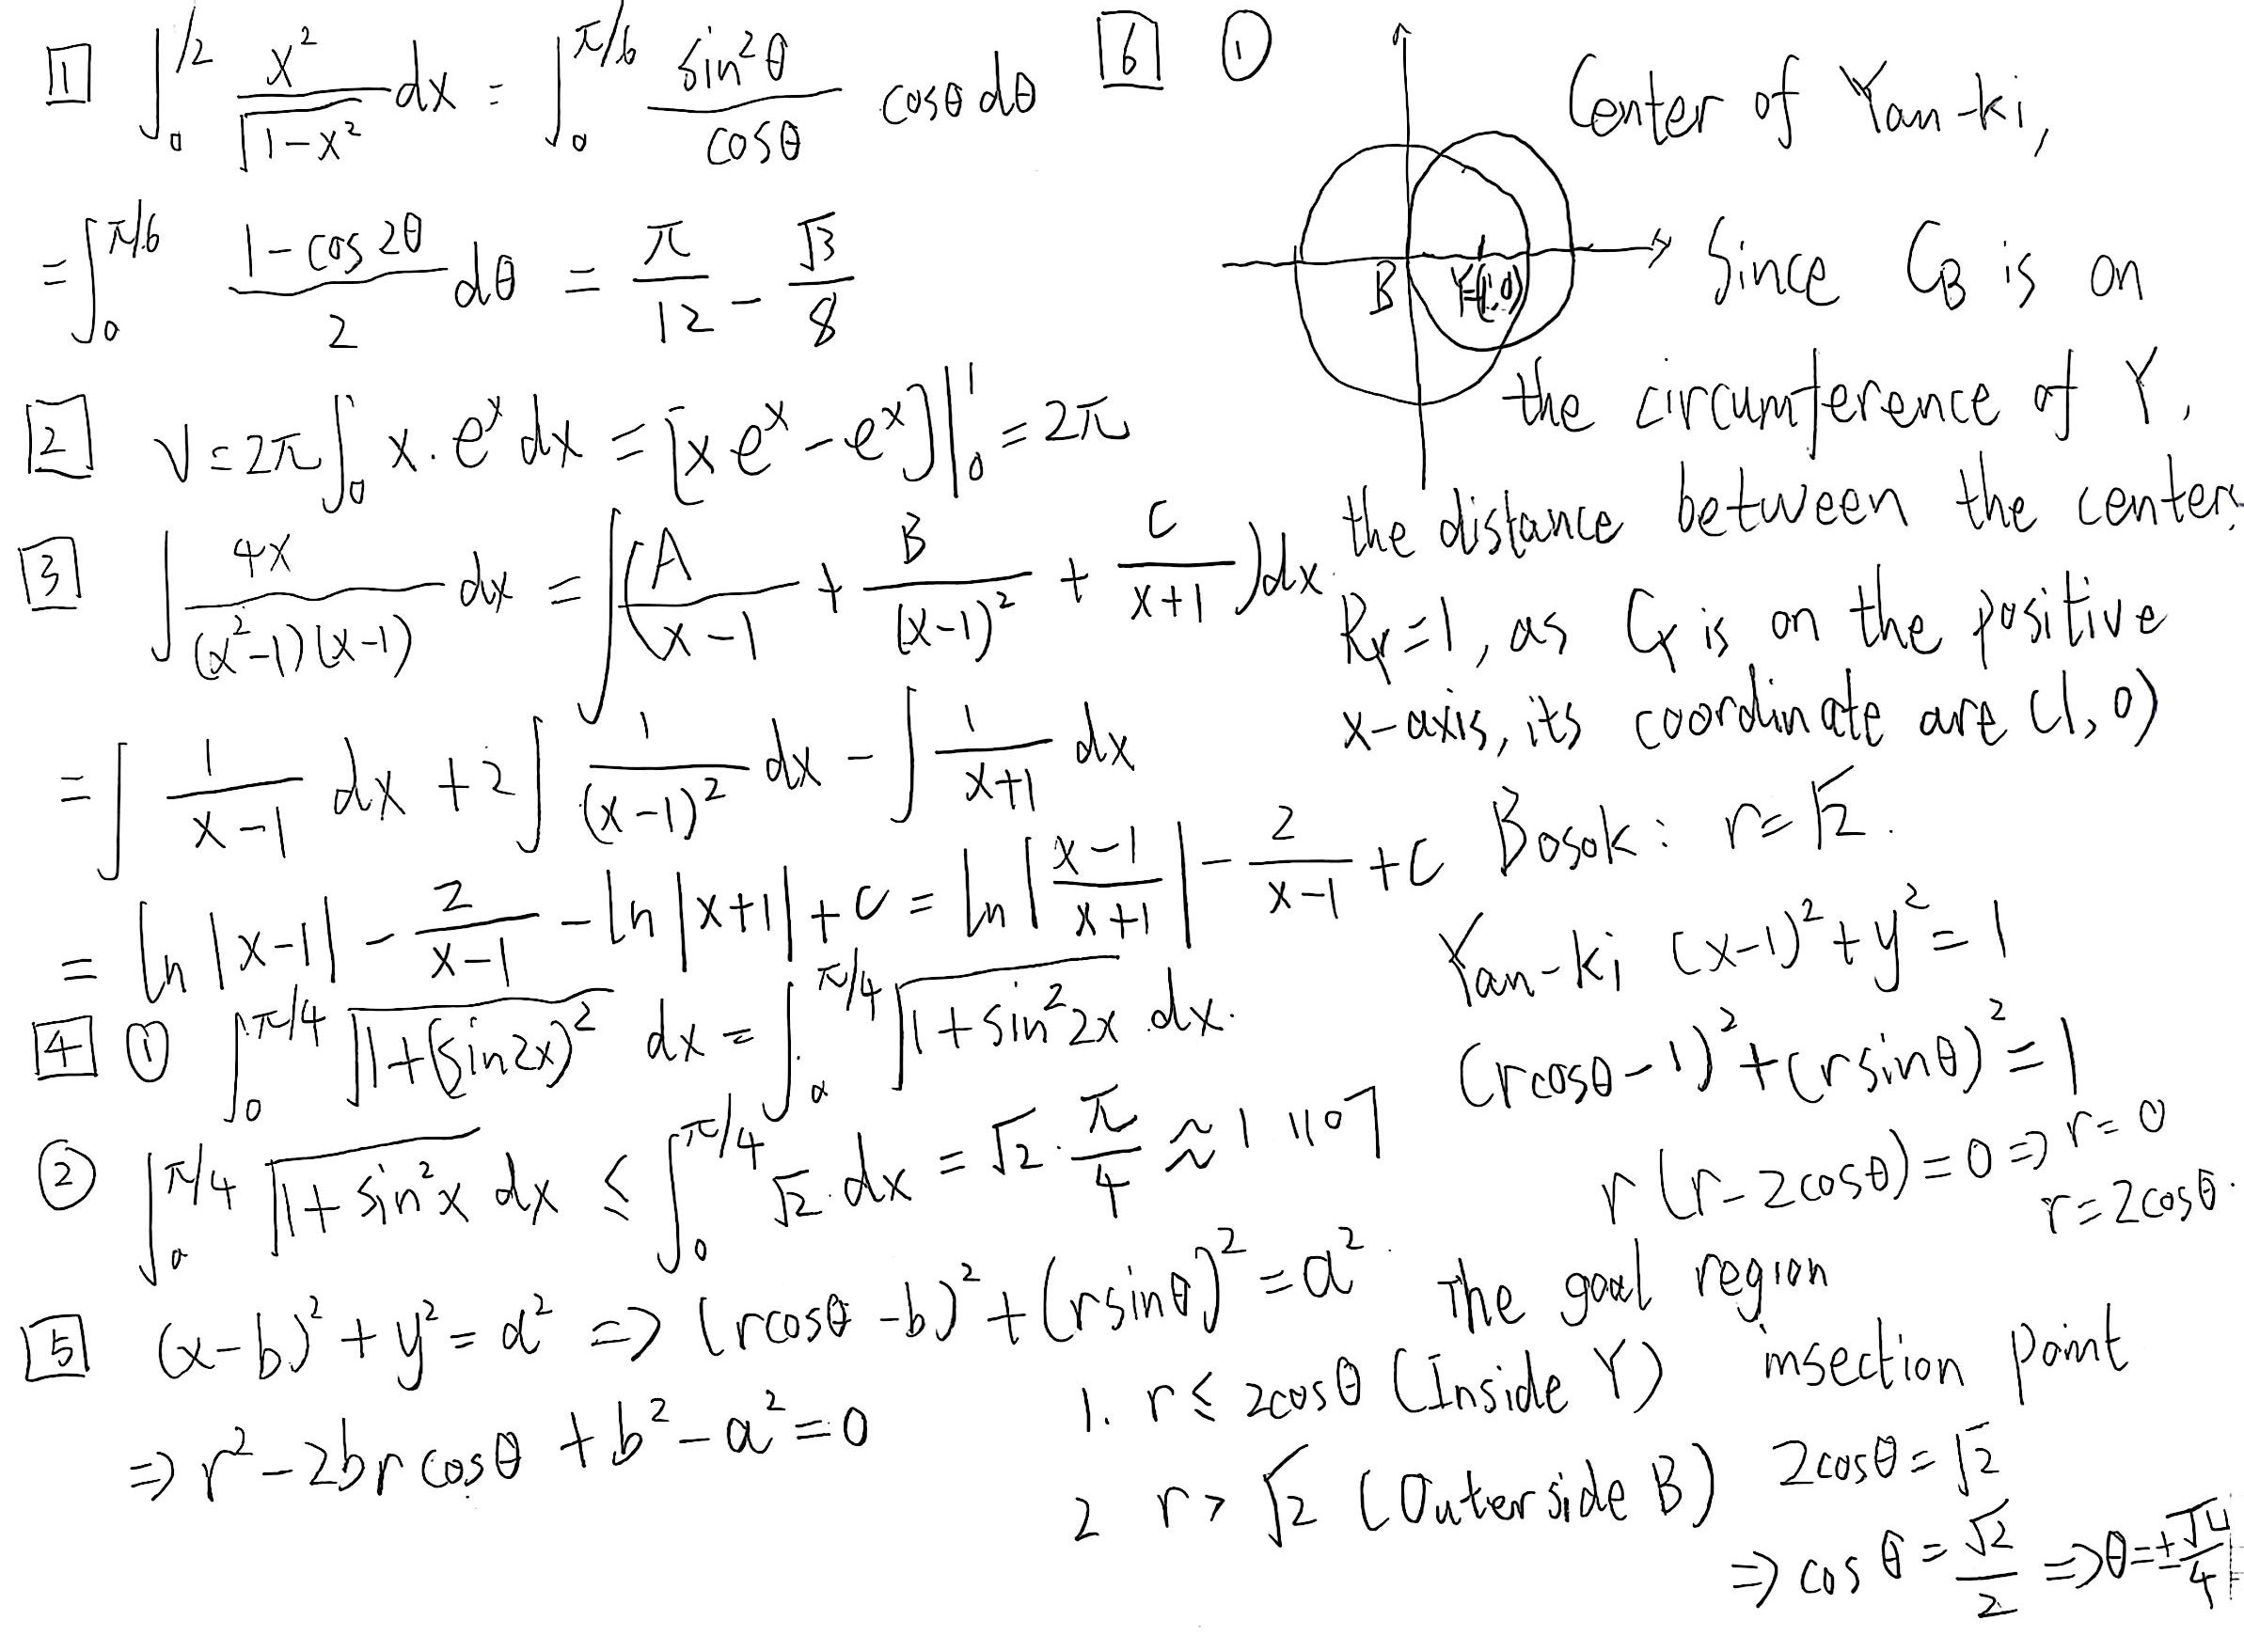 1 ∫₀^{1/2} x²/√(1-x²) dx = ∫₀^{π/6} sin²θ/cosθ cosθ dθ
= ∫₀^{π/6} (1-cos2θ)/2 dθ = π/12 - √3/8
2 V = 2π∫₀¹ x·eˣ dx = [xeˣ - eˣ]|₀¹ = 2π
3 ∫ 4x/((x²-1)(x-1)) dx = ∫(A/(x-1) + B/(x-1)² + C/(x+1))dx.
= ∫ 1/(x-1) dx + 2∫ 1/(x-1)² dx - ∫ 1/(x+1) dx
= ln|x-1| - 2/(x-1) - ln|x+1| + C = ln|(x-1)/(x+1)| - 2/(x-1) + C
4 ① ∫₀^{π/4} √(1+(sin2x)²) dx = ∫₀^{π/4} √(1+sin²2x) dx.
② ∫₀^{π/4} √(1+sin²x) dx ≤ ∫₀^{π/4} √2 dx = √2·π/4 ≈ 1 1107
5 (x-b)² + y² = a² ⇒ (rcosθ-b)² + (rsinθ)² = a²
⇒ r² - 2br cosθ + b² - a² = 0
6 ①
B Y=(1,0)
Center of Yan-ki,
Since C_B is on
the circumference of Y,
the distance between the centers
R_Y=1, as C_Y is on the positive
x-axis, its coordinate are (1,0)
Bosok: r=√2.
Yan-ki (x-1)² + y² = 1
(rcosθ-1)² + (rsinθ)² = 1
r(r-2cosθ)=0 ⇒ r=0
r=2cosθ.
The goal region
1. r ≤ 2cosθ (Inside Y)
2 r > √2 (Outerside B)
insection point
2cosθ = √2
⇒ cosθ = √2/2 ⇒ θ=±π/4